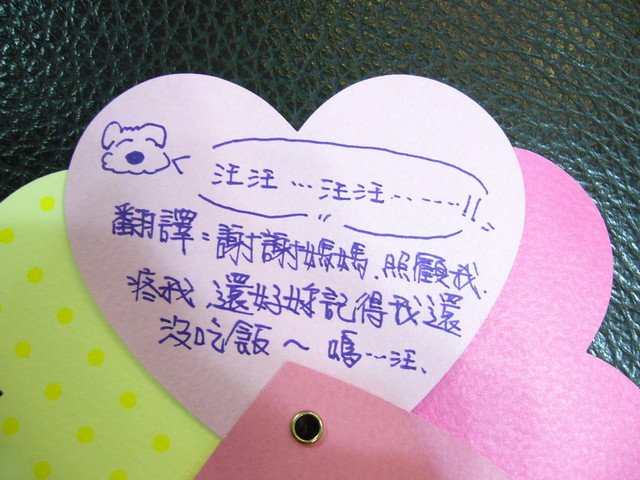 汪汪…汪汪……!!
翻譯:謝謝媽媽、照顧我、
疼我、還好好記得我還
沒吃飯~嗚…汪、